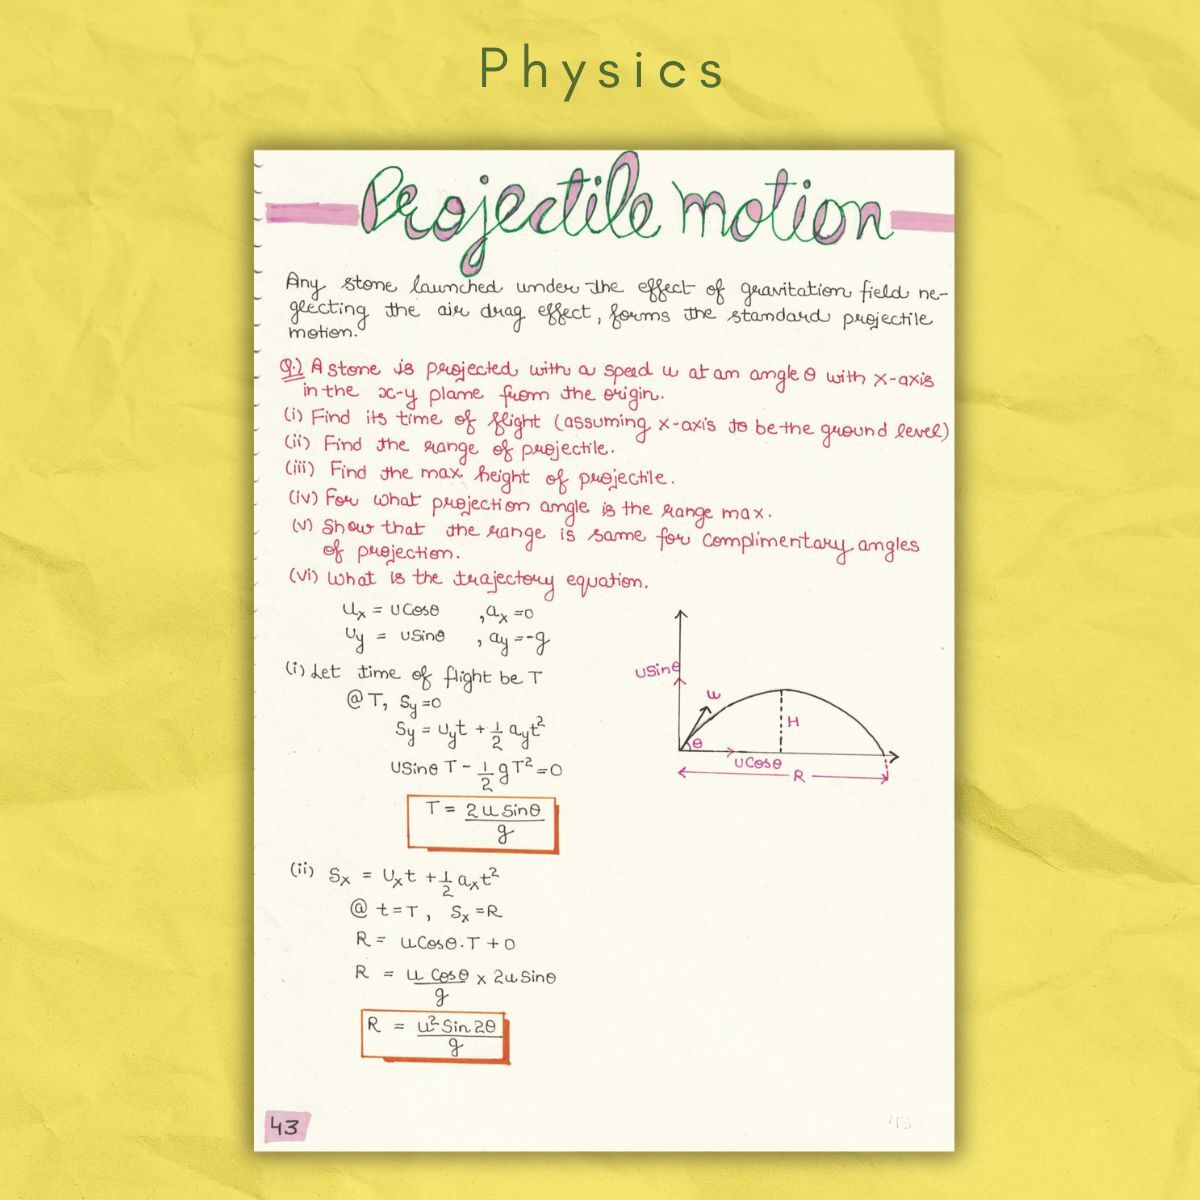 Physics
Projectile motion
Any stone launched under the effect of gravitation field ne-
glecting the air drag effect, forms the standard projectile
motion.
Q.) A stone is projected with a speed u at an angle θ with x-axis
in the x-y plane from the origin.
(i) Find its time of flight (assuming x-axis to be the ground level)
(ii) Find the range of projectile.
(iii) Find the max. height of projectile.
(iv) For what projection angle is the range max.
(v) Show that the range is same for complimentary angles
of projection.
(vi) What is the trajectory equation.
uₓ = uCosθ , aₓ = 0
u_y = uSinθ , a_y = -g
(i) Let time of flight be T
@ T, S_y = 0
S_y = u_y t + 1/2 a_y t²
uSinθ T - 1/2 g T² = 0
T = 2u Sinθ / g
uSinθ
u
θ
H
uCosθ
R
(ii) Sₓ = uₓt + 1/2 aₓt²
@ t = T, Sₓ = R
R = uCosθ.T + 0
R = u Cosθ / g × 2u Sinθ
R = u² Sin 2θ / g
43